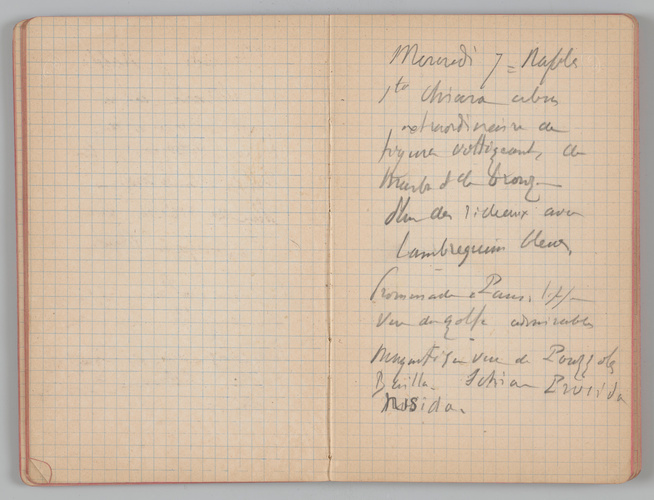 Mercredi 7 = Naples
Ste Chiara
extraordinaire de
figures voltigeant, de
marbre & de bronze
des rideaux avec
Lambrequins bleus,
Promenade
vue du golfe admirables
Magnifique vue de Pouzzoles
Ischia Procida
Nisida.